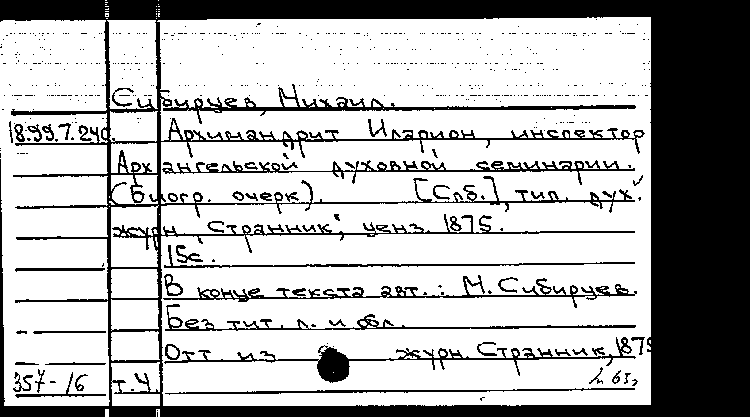 Сибирцев, Михаил.
18.99.7.240. Архимандрит Иларион, инспектор
Архангельской духовной семинарии.
(Биогр. очерк). [Спб.], тип. дух.
журн. "Странник", ценз. 1875.
15с.
В конце текста авт.: М. Сибирцев.
Без тит. л. и обл.
Отт. из журн. Странник, 1875
357-16 т.4.